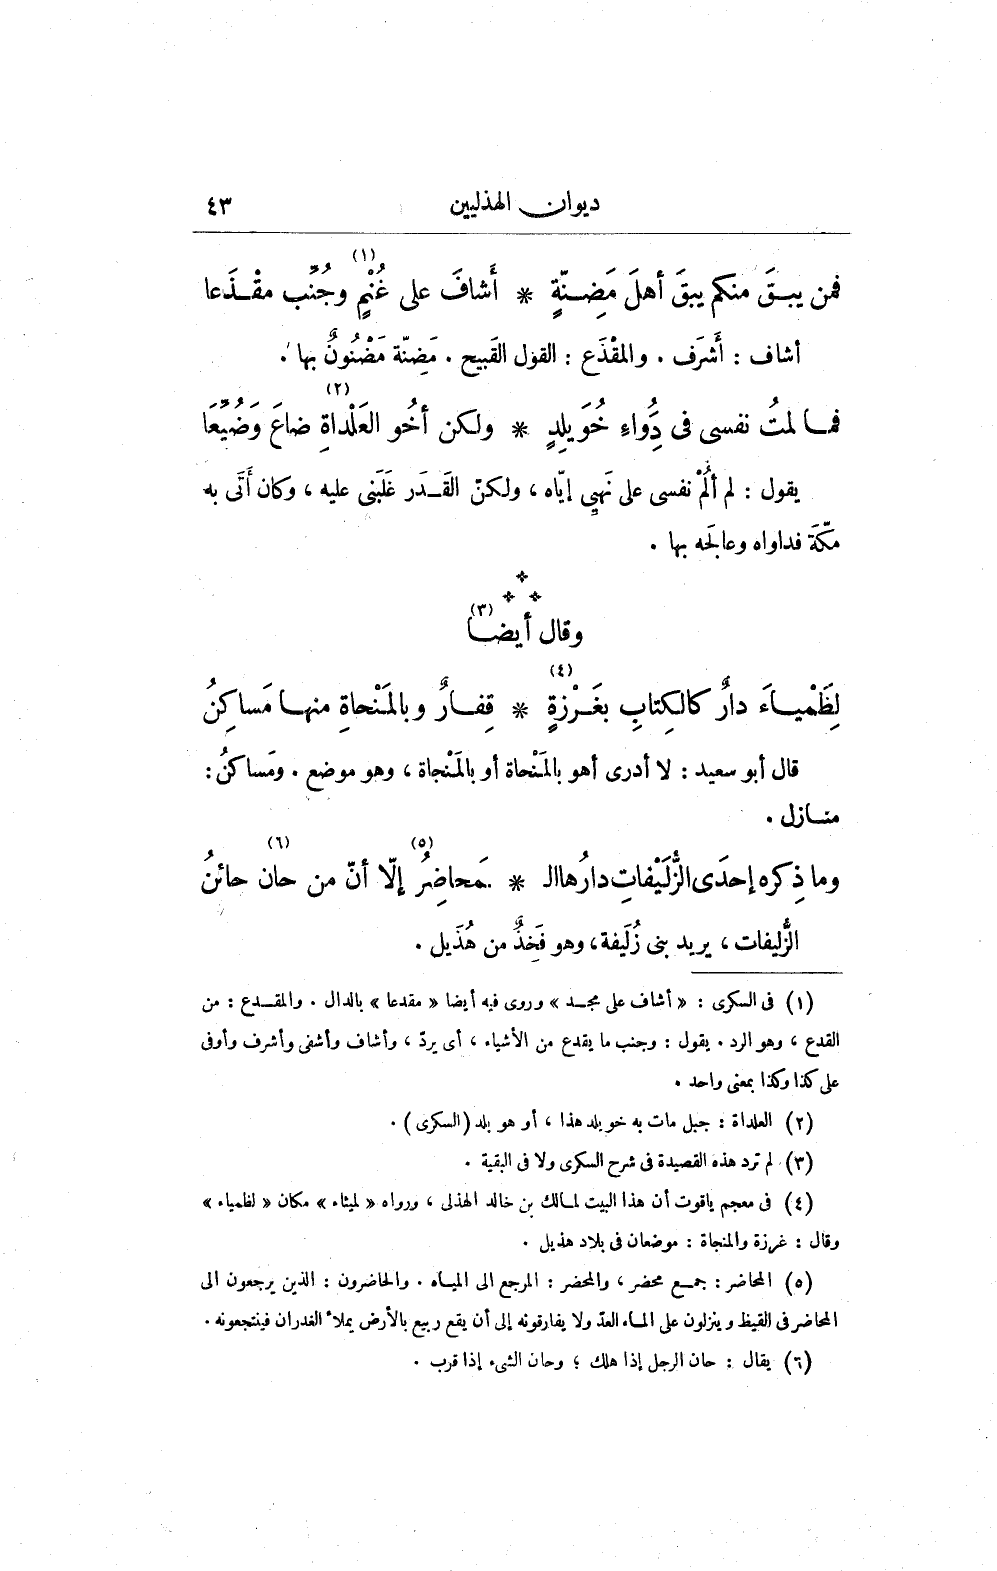 ديوان الهذليين ٤٣
فمن يبقَ منكم يبقَ أهلَ مَضِنّةٍ * أَشافَ على غُنْمٍ وجُنِّب مقْذَعا (١)
أشاف : أَشرَف . والمقْذَع : القول القَبيح . مَضِنّة مَضْنُونٌ بها .
فما لمتُ نفسى فى دِواءِ خُوَيلِدٍ * ولكن أخُو العَلْداةِ ضاعَ وَضُيِّعَا (٢)
يقول : لم أَلُمْ نفسى على نَهيِى إيّاه ، ولكنّ القَدَر غَلَبَنى عليه ، وكان أَتَى به
مكّةَ فداواه وعالجَه بها .
وقال أيضا (٣)
لِظَمْياءَ دارٌ كالكِتابِ بغَرْزةٍ * قِفارٌ وبالمَنْحاةِ منها مَساكِنُ (٤)
قال أبو سعيد : لا أدرى أهو بالمَنْحاة أو بالمَنْجاة ، وهو موضع . ومَساكنُ :
منازل .
وما ذِكره إحدَى الزُّلَيْفاتِ دارُها الـ * ـمَحاضِرُ إلّا أنّ من حان حائنُ (٥) (٦)
الزُّليفات ، يريد بنى زُلَيفة، وهو فَخِذٌ من هُذَيل .
(١) فى السكرى : « أشاف على مجد » وروى فيه أيضا « مقدعا » بالدال . والمقدع : من
القدع ، وهو الرد . يقول : وجنب ما يقدع من الأشياء ، أى يردّ ، وأشاف وأشفى وأشرف وأوفى
على كذا وكذا بمعنى واحد .
(٢) العلداة : جبل مات به خويلد هذا ، أو هو بلد (السكرى) .
(٣) لم ترد هذه القصيدة فى شرح السكرى ولا فى البقية .
(٤) فى معجم ياقوت أن هذا البيت لمالك بن خالد الهذلى ، ورواه « لميثاء » مكان « لظمياء »
وقال : غرزة والمنجاة : موضعان فى بلاد هذيل .
(٥) المحاضر : جمع محضر ، والمحضر : المرجع الى المياه . والحاضرون : الذين يرجعون الى
المحاضر فى القيظ وينزلون على الماء العدّ ولا يفارقونه إلى أن يقع ربيع بالأرض يملأ الغدران فينتجعونه .
(٦) يقال : حان الرجل إذا هلك ؛ وحان الشىء إذا قرب .